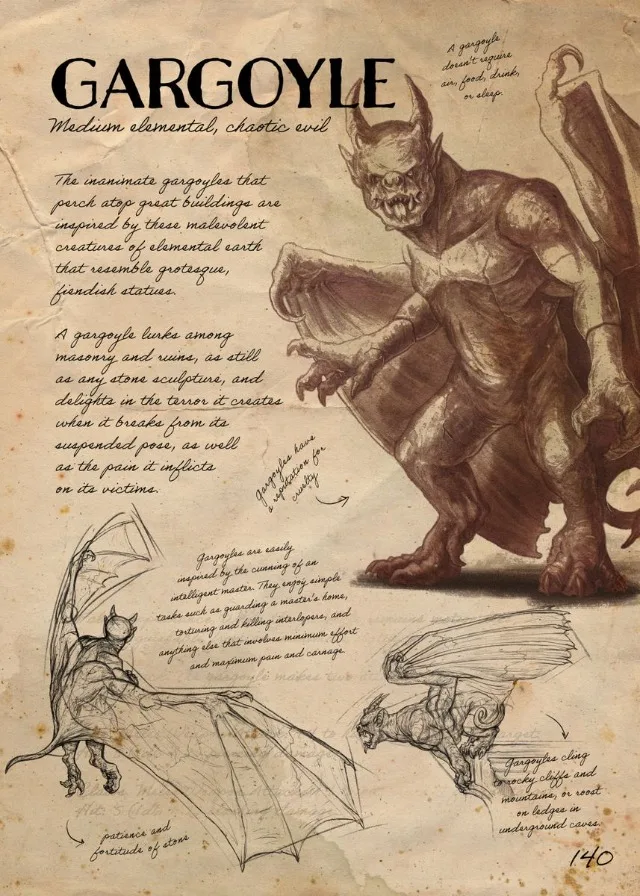 GARGOYLE
Medium elemental, chaotic evil
A gargoyle
doesn't require
air, food, drink,
or sleep.
The inanimate gargoyles that
perch atop great buildings are
inspired by these malevolent
creatures of elemental earth
that resemble grotesque,
fiendish statues.
A gargoyle lurks among
masonry and ruins, as still
as any stone sculpture, and
delights in the terror it creates
when it breaks from its
suspended pose, as well
as the pain it inflicts
on its victims.
Gargoyles have
a reputation for
cruelty
Gargoyles are easily
inspired by the cunning of an
intelligent master. They enjoy simple
tasks such as guarding a master's home,
torturing and killing interlopers, and
anything else that involves minimum effort
and maximum pain and carnage.
Gargoyles cling
to rocky cliffs and
mountains, or roost
on ledges in
underground caves.
patience and
fortitude of stone
140